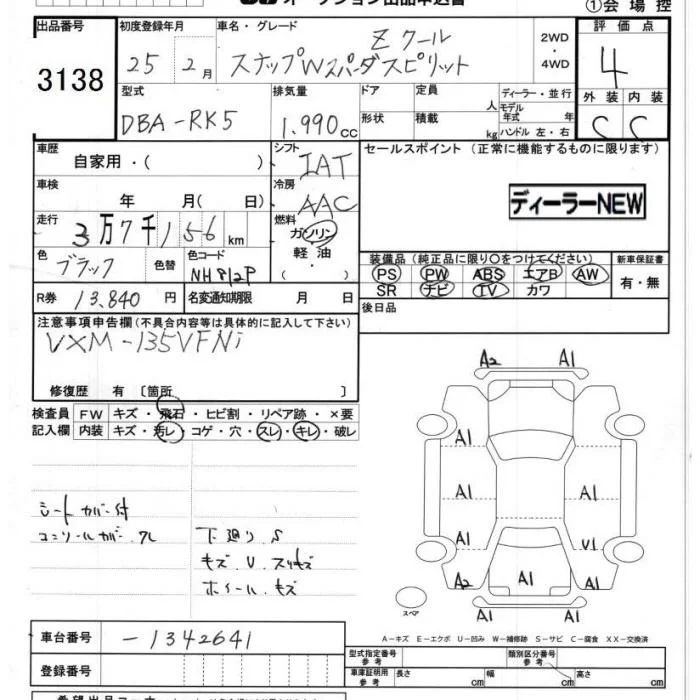 オークション出品申込書
①会場控
出品番号
3138
初度登録年月
25 2月
車名・グレード
Zクール
スナップWスパーダスピリット
2WD
・
4WD
評価点
4
外装 内装
C C
型式
DBA-RK5
排気量
1.990cc
ドア
形状
定員 人
積載 kg
ディーラー・並行
モデル
年式 年
ハンドル 左・右
車歴
自家用・( )
シフト
IAT
セールスポイント (正常に機能するものに限ります)
車検
年 月( 日)
冷房
AAC
ディーラーNEW
走行
3万7千156km
燃料
ガソリン
軽油
・
( )
色
ブラック
色替
色コード
NH812P
装備品 (純正品に限り○をつけてください)
PS PW ABS エアB AW
SR ナビ TV カワ
新車保証書
有・無
R券 13,840円
名変通知期限 月 日
後日品
注意事項申告欄 (不具合内容等は具体的に記入して下さい)
VXM-135VFNi
修復歴 有 〔箇所 〕
検査員
記入欄
FW キズ・飛石・ヒビ割・リペア跡・×要
内装 キズ・汚レ・コゲ・穴・スレ・キレ・破レ
シートカバー付
下廻り S
キズ U スリキズ
ホイール キズ
A2 A1
A1
A1 A1
A1 U1
A2 A1 A1
A1 A1
スペア
A－キズ E－エクボ U－凹み W－補修跡 S－サビ C－腐食 XX－交換済
車台番号
-1342641
登録番号
型式指定番号
参考
類別区分番号
参考
車庫証明用
参考
長さ cm
幅 cm
高さ cm